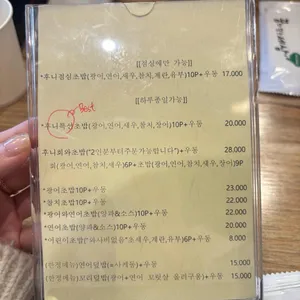 [[점심에만 가능]]
*후니점심초밥(광어,연어,새우,참치,계란,유부)10P+우동 17.000
[[하루종일가능]]
Best
*후니특선초밥(광어,연어,새우,참치,장어)10P+우동 20.000
후니회와초밥("2인분부터주문가능합니다")+우동 28.000
회(광어,연어,참치,새우)6P+초밥(광어,연어,참치,새우,장어)9P
*광어초밥10P+우동 23.000
*참치초밥10P+우동 22.000
*광어와연어초밥(양파&소스)10P+우동 22.000
*연어초밥(양파&소스)10P+우동 20.000
*어린이초밥"와사비없음"초새우,계란,유부)6P+우동 8.000
(한정메뉴)연어덮밥(+사케동)+우동 15.000
(한정메뉴)꼬리덮밥(광어+연어 꼬릿살 올려구동)+우동 15.000